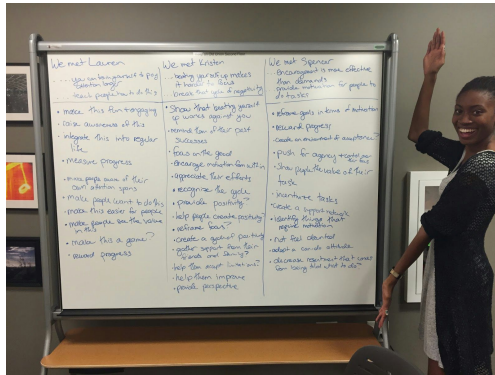 We met Lauren
... you can be yourself to pay
attention longer
teach people how to do this
• make this fun + engaging
• raise awareness of this
• integrate this into regular
life
• measure progress
• make people aware of their
own attention spans
• make people want to do this
• make this easier for people
• make people see the value
in this
• make this a game?
• reward progress
We met Kristen
... beating yourself up makes
it harder to focus
break that cycle of negativity
• Show that beating yourself
up works against you
• remind them of their past
successes
• focus on the good
• Encourage motivation from within
• appreciate their efforts
• recognize the cycle
• provide positivity?
• help people create positivity?
• reframe fears?
• create a cycle of positivity
• gather support from their
friends and family?
• help them accept limitations?
• help them improve
• provide perspective
We met Spencer
... encouragement is more effective
than demands
provide motivation for people to
do tasks
• reframe goals in terms of motivation
• reward progress
• create an environment of acceptance?
• push for agency +
• Show people the value of their
task
• create a support
• identify things that
require motivation
• not feel daunted
• adopt a can-do attitude
• decrease resentment that comes
from being told what to do?